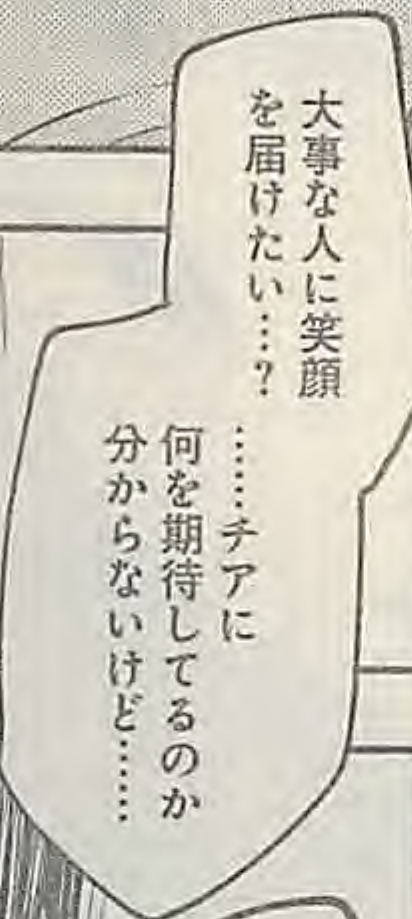 大事な人に笑顔
を届けたい…?
……チアに
何を期待してるのか
分からないけど……